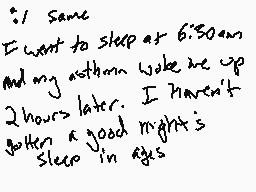 :/ same
I went to sleep at 6:30am
and my asthma woke me up
2 hours later. I haven't
gotten a good night's
sleep in ages